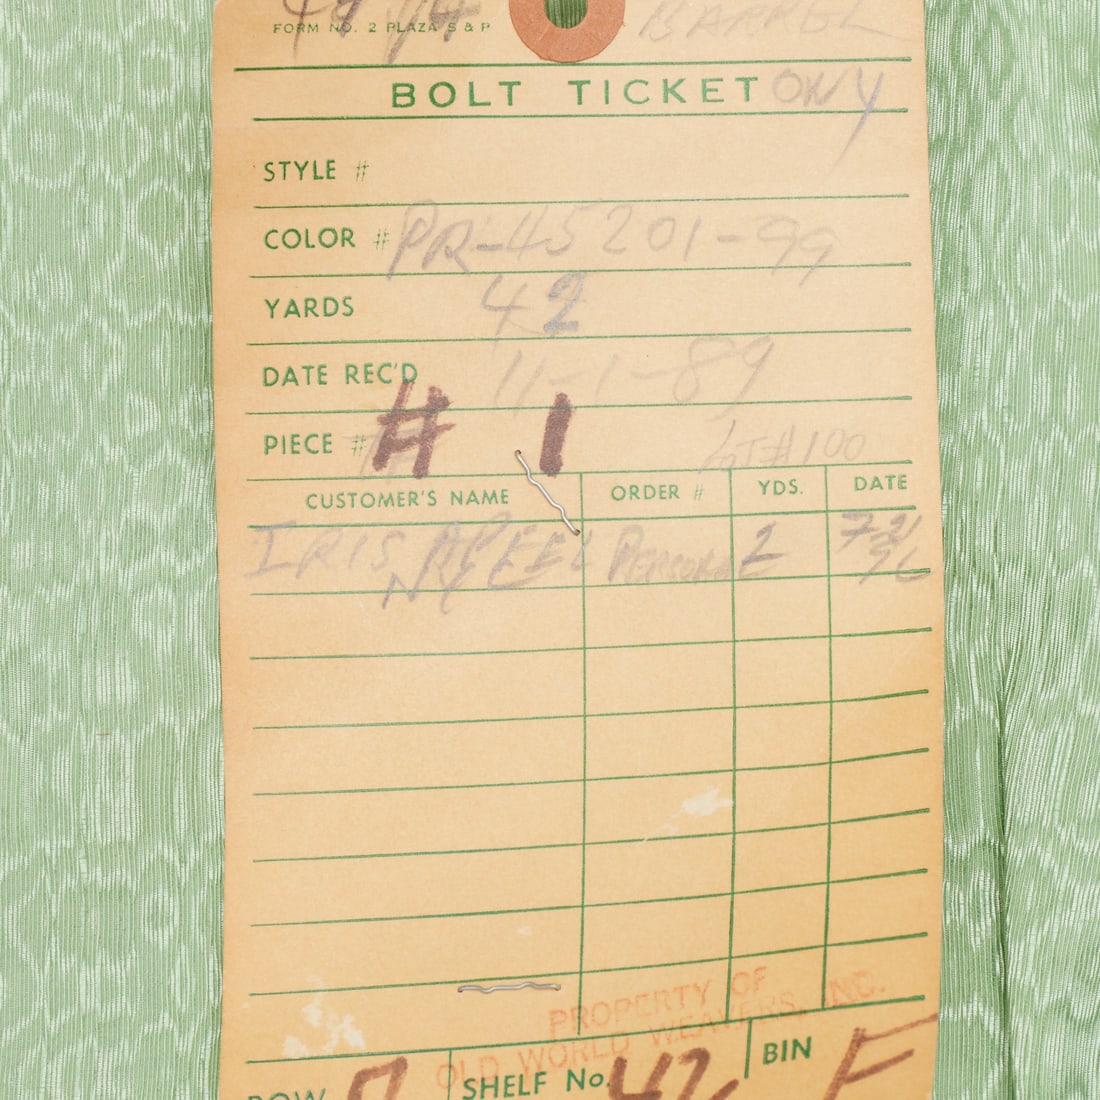 FORM NO. 2 PLAZA S & P
BARREL
BOLT TICKET ONY
STYLE #
COLOR # PR-45201-99
YARDS 42
DATE REC'D 11-1-89
PIECE # # 1 LOT# 100
CUSTOMER'S NAME ORDER # YDS. DATE
IRIS APFEL PERSONAL 2 7-21
NY 96
PROPERTY OF
OLD WORLD WEAVERS, INC.
ROW 7 SHELF No. 42 BIN F